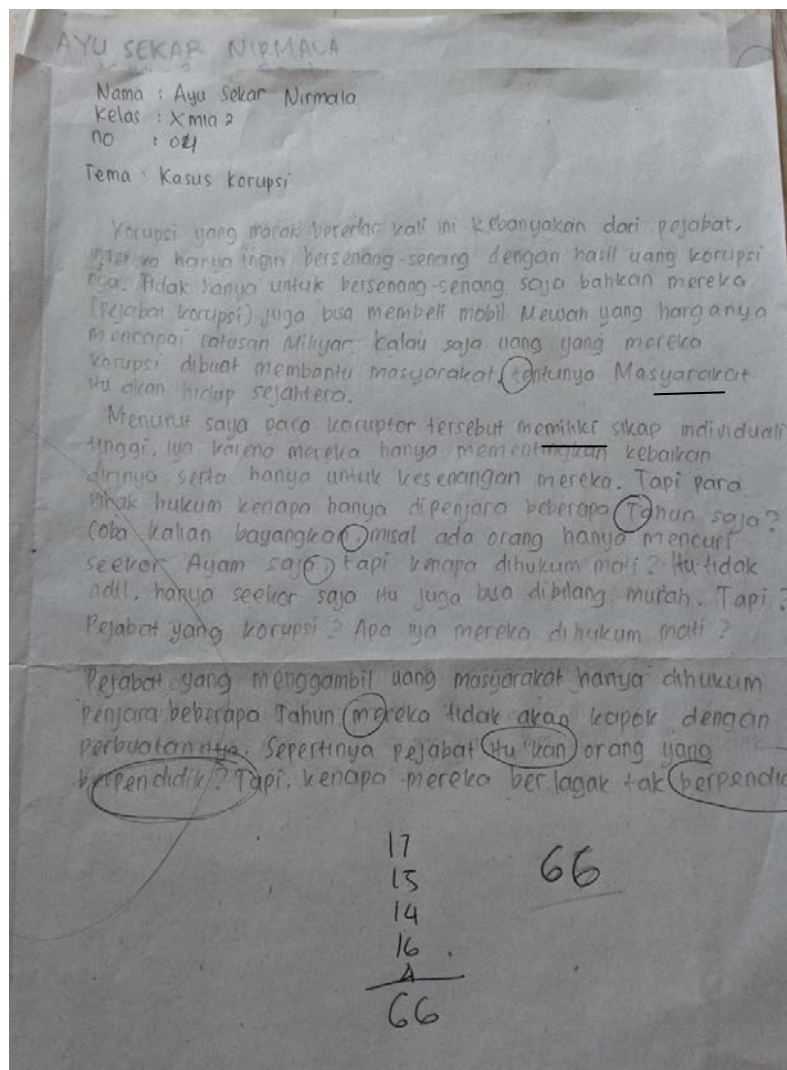 AYU SEKAR NIRMALA
Nama : Ayu Sekar Nirmala
Kelas : X mia 2
no : 04
Tema : Kasus korupsi
Korupsi yang marak beredar kali ini kebanyakan dari pejabat,
mereka hanya ingin bersenang-senang dengan hasil uang korupsi
nya. Tidak hanya untuk bersenang-senang saja bahkan mereka
(pejabat korupsi) juga bisa membeli mobil Mewah yang harganya
mencapai ratusan Milyar. Kalau saja uang yang mereka
korupsi dibuat membantu masyarakat, tentunya Masyarakat
itu akan hidup sejahtera.
Menurut saya para koruptor tersebut memiliki sikap individuali
tinggi, iya karena mereka hanya mementingkan kebaikan
dirinya serta hanya untuk kesenangan mereka. Tapi para
pihak hukum kenapa hanya dipenjara beberapa Tahun saja?
Coba kalian bayangkan, misal ada orang hanya mencuri
seekor Ayam saja, tapi kenapa dihukum mati? Itu tidak
adil, hanya seekor saja itu juga bisa dibilang murah. Tapi?
Pejabat yang korupsi? Apa iya mereka dihukum mati?
Pejabat yang menggambil uang masyarakat hanya dihukum
penjara beberapa Tahun mereka tidak akan kapok dengan
perbuatannya. Sepertinya pejabat itu kan orang yang
berpendidik? Tapi, kenapa mereka berlagak tak berpendi
17
15
14
16
4
66
66